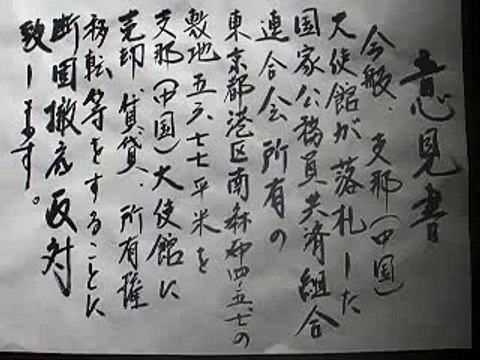 意見書
今般、支那(中国)
大使館が落札した
国家公務員共済組合
連合会所有の
東京都港区南麻布四ノ五ノ七の
敷地五六七七平米を
支那(中国)大使館に
売却、賃貸、所有権
移転等をすることに
断固徹底反対
致します。